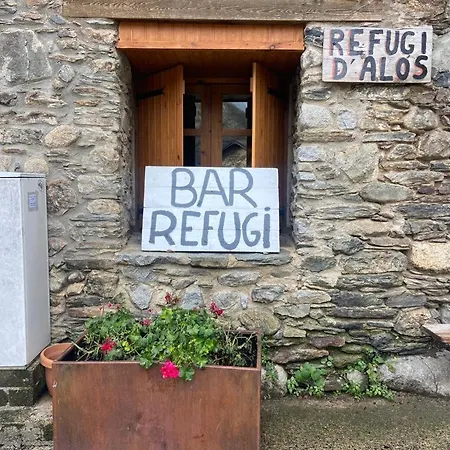 REFUGI
D'ALOS
BAR
REFUGI